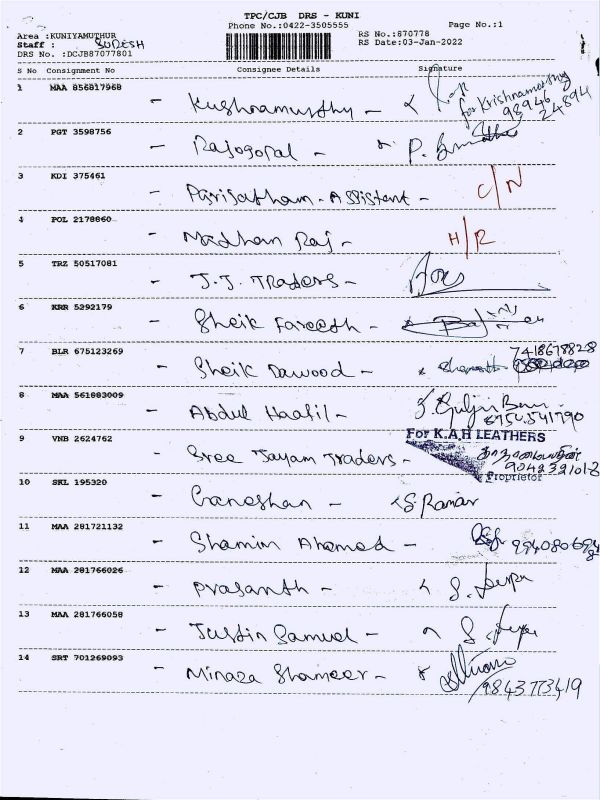 TPC/CJB DRS - KUNI
Phone No.:0422-3505555 Page No.:1
Area :KUNIYAMUTHUR RS No.:870778
Staff : SURESH RS Date:03-Jan-2022
DRS No. :DCJB87077801
S No Consignment No Consignee Details Signature
1 MAA 856817968 - Kushnamurthy - for Krishnamorthy 98946 24894
2 PGT 3598756 - Rajogopal - P.
3 KDI 375461 - Parijatham - Assistent - C/N
4 POL 2178860 - Madhan Raj - H/R
5 TRZ 50517081 - J.J. Traders -
6 KRR 5292179 - Sheik Fareeth -
7 BLR 675123269 - Sheik Dawood - 7418678828
8 MAA 561883009 - Abdul Haafil -
9 VNB 2624762 - Sree Jayam Traders - For K.A.H LEATHERS
Proprietor
10 SKL 195320 - Ganeshan - S. Raman
11 MAA 281721132 - Shamim Ahemed -
12 MAA 281766026 - Prasanth -
13 MAA 281766058 - Justin Samuel -
14 SRT 701269093 - Minaza Shameer - 9843773419